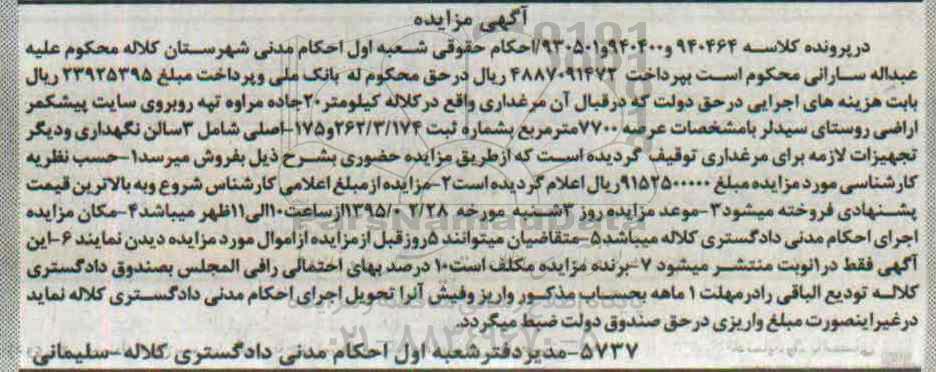 آگهی مزایده
درپرونده کلاسه ۹۴۰۴۶۴ و۹۴۰۴۰۰و۹۳۰۵۰۱/احکام حقوقی شعبه اول احکام مدنی شهرستان کلاله محکوم علیه
عبداله سارانی محکوم است بپرداخت ۴۸۸۷۰۹۱۴۷۲ ریال درحق محکوم له بانک ملی وپرداخت مبلغ ۲۳۹۲۵۳۹۵ ریال
بابت هزینه های اجرایی درحق دولت که درقبال آن مرغداری واقع درکلاله کیلومتر۲۰جاده مراوه تپه روبروی سایت پیشکمر
اراضی روستای سیدلر بامشخصات عرصه ۷۷۰۰مترمربع بشماره ثبت ۲۶۲/۳/۱۷۴و۱۷۵-اصلی شامل ۳سالن نگهداری ودیگر
تجهیزات لازمه برای مرغداری توقیف گردیده است که ازطریق مزایده حضوری بشرح ذیل بفروش میرسد۱-حسب نظریه
کارشناسی مورد مزایده مبلغ ۹۱۵۲۵۰۰۰۰۰ریال اعلام گردیده است۲-مزایده از مبلغ اعلامی کارشناس شروع وبه بالاترین قیمت
پیشنهادی فروخته میشود۳-موعد مزایده روز ۳شنبه مورخه ۱۳۹۵/۰۲/۲۸ازساعت۱۰الی۱۱ظهر میباشد۴-مکان مزایده
اجرای احکام مدنی دادگستری کلاله میباشد۵-متقاضیان میتوانند ۵روزقبل از مزایده ازاموال مورد مزایده دیدن نمایند ۶-این
آگهی فقط در۱نوبت منتشر میشود ۷-برنده مزایده مکلف است۱۰ درصد بهای احتمالی رافی المجلس بصندوق دادگستری
کلاله تودیع الباقی رادرمهلت ۱ ماهه بحساب مذکور واریز وفیش آنرا تحویل اجرای احکام مدنی دادگستری کلاله نماید
درغیراینصورت مبلغ واریزی درحق صندوق دولت ضبط میگردد.
۵۷۳۷-مدیردفترشعبه اول احکام مدنی دادگستری کلاله-سلیمانی